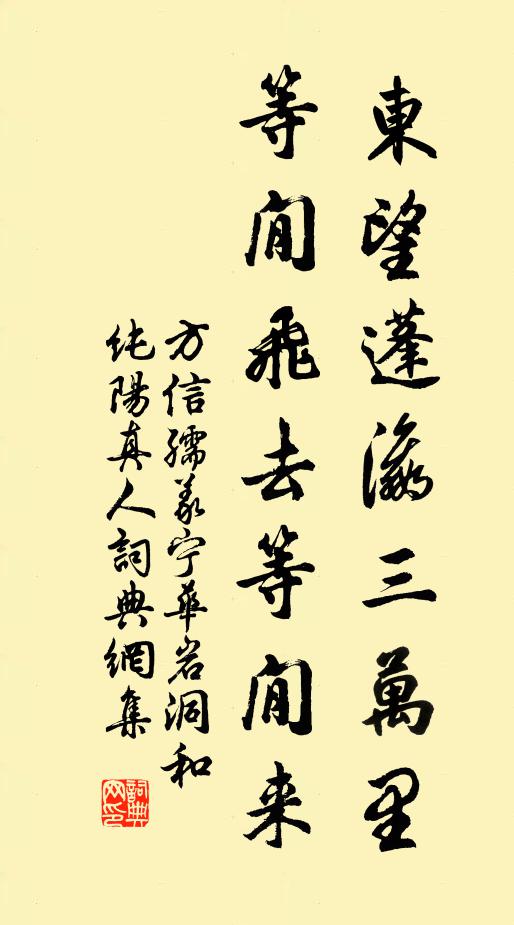 東望蓬瀛三萬里
等閒飛去等閒来
方信孺義宁華岩洞和
纯陽真人詞典網集
詞典网印